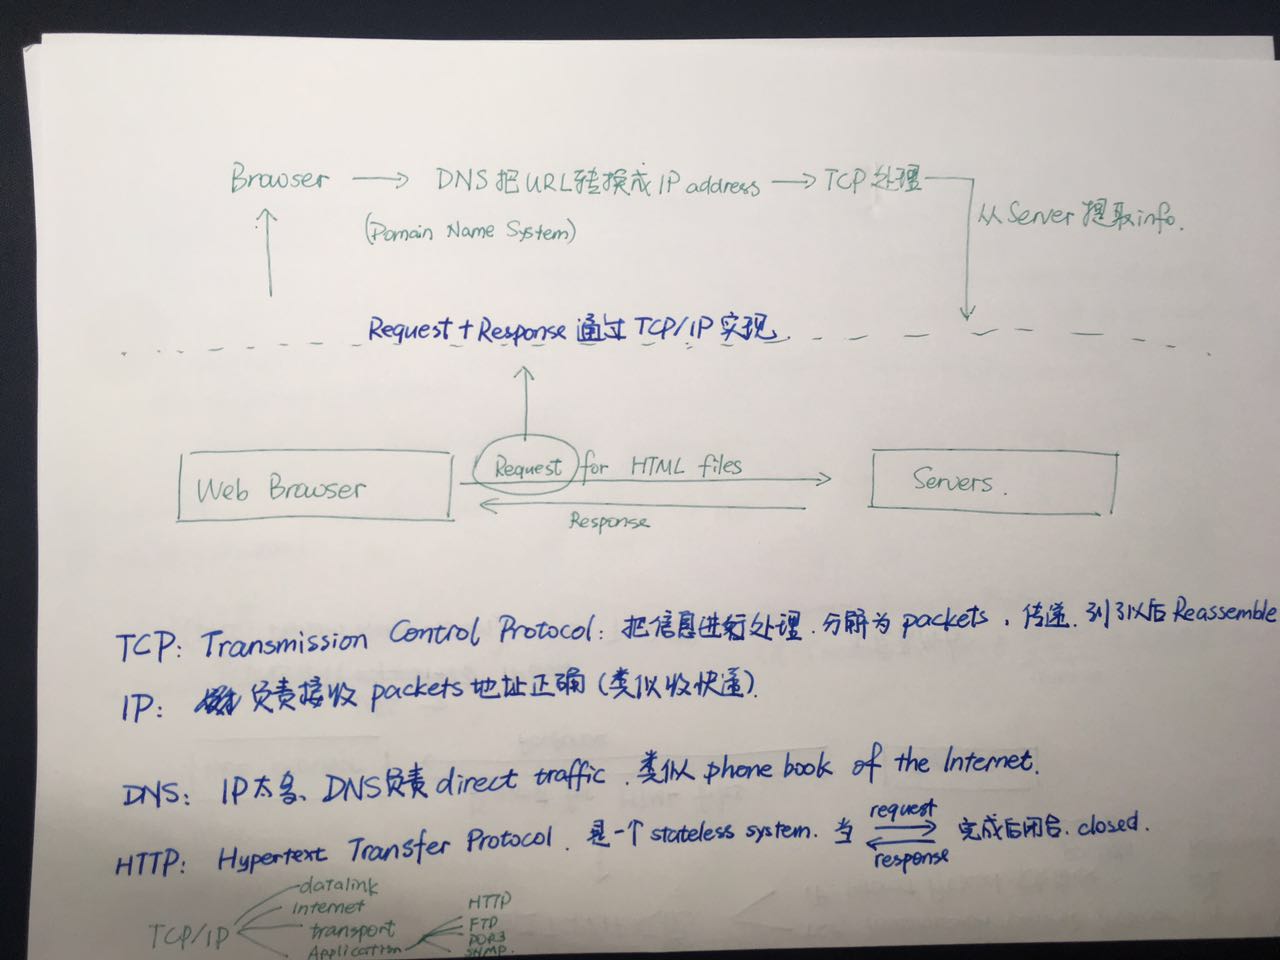 Browser → DNS把URL转换成IP address → TCP处理
(Domain Name System)
从Server提取info.
Request+Response 通过 TCP/IP 实现.
Request for HTML files
Web Browser
Servers.
Response
TCP: Transmission Control Protocol: 把信息进行处理.分解为 packets, 传递.到了以后Reassemble
IP: 负责接收 packets 地址正确 (类似收快递).
DNS: IP太多、DNS负责 direct traffic. 类似 phone book of the Internet.
HTTP: Hypertext Transfer Protocol. 是一个 stateless system. 当 request response 完成后闭合. closed.
TCP/IP
datalink
Internet
transport
Application
HTTP
FTP
POP3